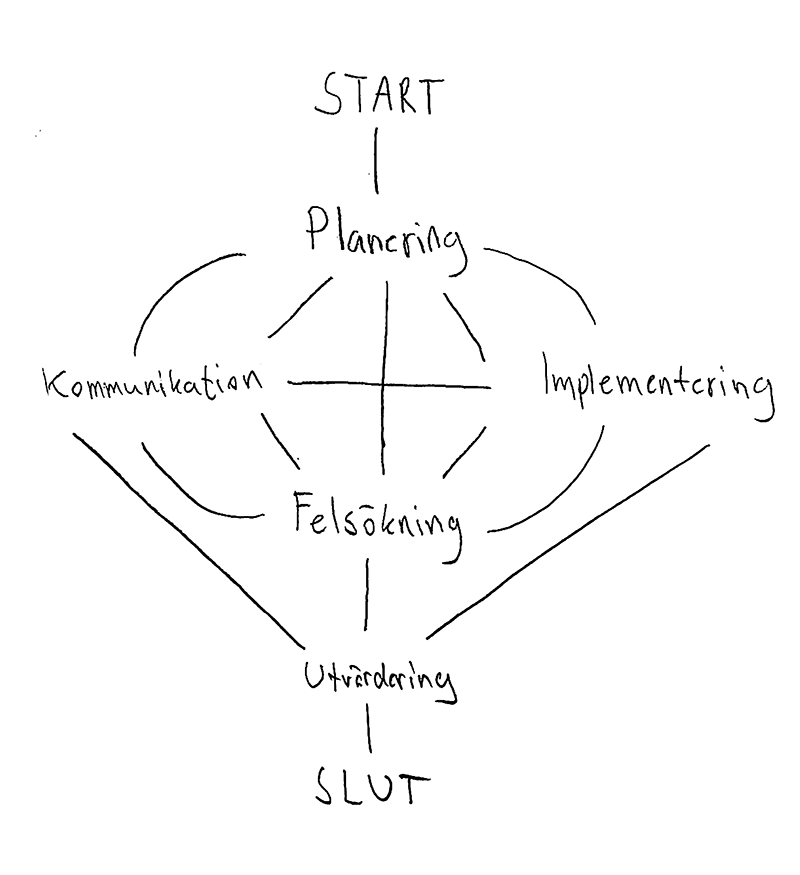 START
Planering
Kommunikation
Implementering
Felsökning
Utvärdering
SLUT